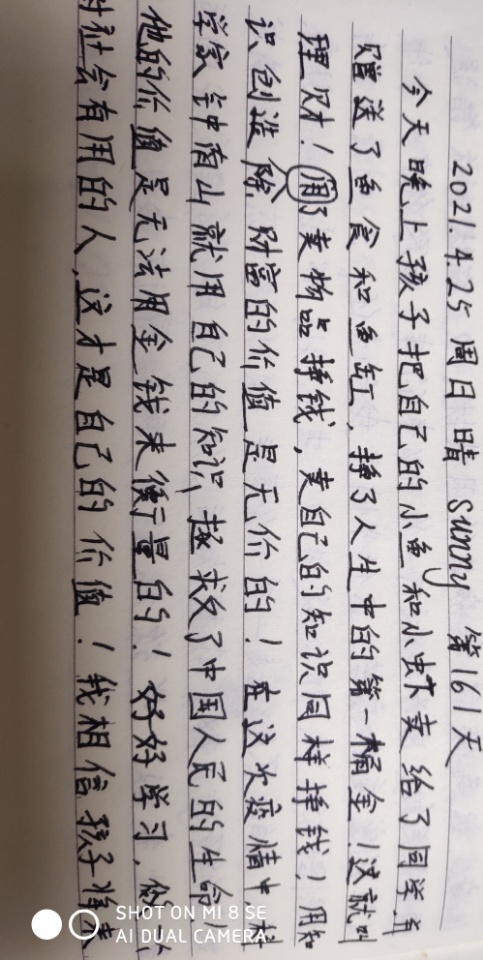 2021.4.25 周日 晴 sunny 第161天
今天晚上孩子把自己的小鱼和小虾卖给了同学并
赠送了鱼食和鱼缸，挣了人生中的第一桶金！这就叫
理财！用了卖物品挣钱，卖自己的知识同样挣钱！用知
识创造 财富的价值是无价的！在这次疫情中 科
学家钟南山就用自己的知识，拯救了中国人民的生命
他的价值是无法用金钱来衡量的！好好学习，做个
对社会有用的人，这才是自己的价值！我相信孩子将来
SHOT ON MI 8 SE
AI DUAL CAMERA